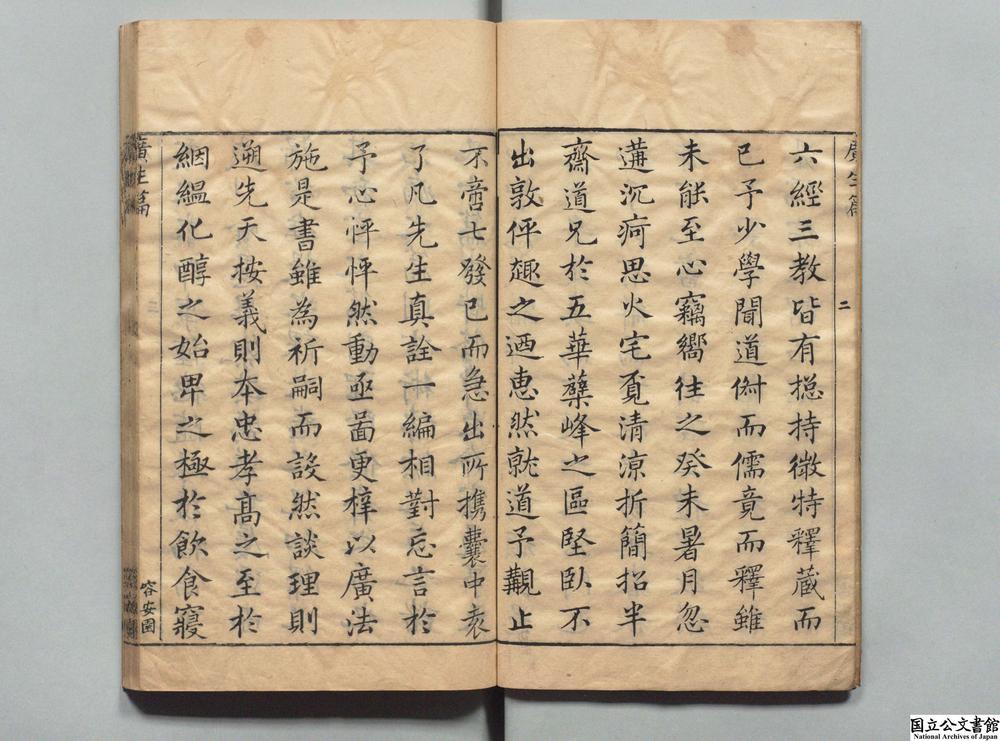 廣生篇
二
六經三教皆有捴持微特釋蔵而
已予少學聞道倁而儒竟而釋雖
未能至心竊嚮往之癸未暑月忽
遘沉疴思火宅覔清凉折簡招半
齋道兄於五華蘖峰之區堅卧不
出敦伻趣之迺惠然就道予覯止
不啻七發已而急出所携囊中袁
了凡先生真詮一編相對忘言於
予心怦怦然動亟啚更梓以廣法
施是書雖為祈嗣而設然談理則
遡先天按義則本忠孝髙之至於
絪緼化醇之始卑之極於飲食寢
廣生篇
容安園
国立公文書館
National Archives of Japan